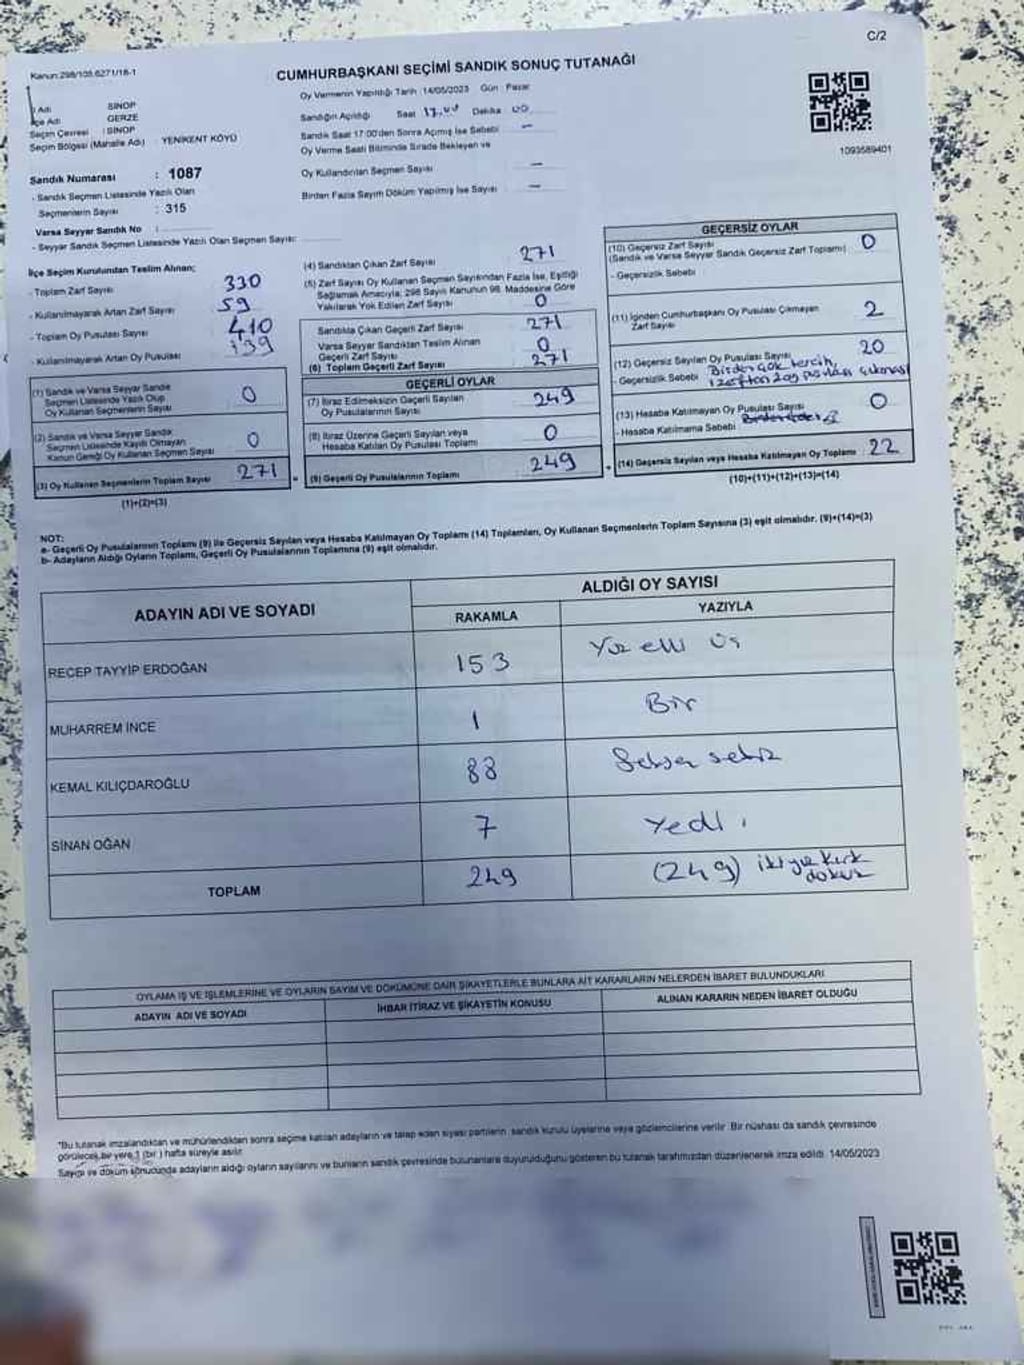 C/2
Kanun:298/105,6271/18-1
CUMHURBAŞKANI SEÇİMİ SANDIK SONUÇ TUTANAĞI
İl Adı SİNOP
İlçe Adı GERZE
Seçim Çevresi : SİNOP
Seçim Bölgesi (Mahalle Adı) : YENİKENT KÖYÜ
Sandık Numarası : 1087
- Sandık Seçmen Listesinde Yazılı Olan
Seçmenlerin Sayısı : 315
Varsa Seyyar Sandık No :
- Seyyar Sandık Seçmen Listesinde Yazılı Olan Seçmen Sayısı:
Oy Vermenin Yapıldığı Tarih :14/05/2023 Gün : Pazar
Sandığın Açıldığı Saat 17.00 Dakika 00
Sandık Saat 17:00'den Sonra Açımış İse Sebebi —
Oy Verme Saati Bitiminde Sırada Bekleyen ve
Oy Kullandırılan Seçmen Sayısı —
Birden Fazla Sayım Döküm Yapılmış İse Sayısı —
1093589401
İlçe Seçim Kurulundan Teslim Alınan;
- Toplam Zarf Sayısı 330
- Kullanılmayarak Artan Zarf Sayısı 59
- Toplam Oy Pusulası Sayısı 410
- Kullanılmayarak Artan Oy Pusulası 139
(1) Sandık ve Varsa Seyyar Sandık
Seçmen Listesinde Yazılı Olup
Oy Kullanan Seçmenlerin Sayısı 0
(2) Sandık ve Varsa Seyyar Sandık
Seçmen Listesinde Kayıtlı Olmayan
Kanun Gereği Oy Kullanan Seçmen Sayısı 0
(3) Oy Kullanan Seçmenlerin Toplam Sayısı 271
(1)+(2)=(3)
(4) Sandıktan Çıkan Zarf Sayısı 271
(5) Zarf Sayısı Oy Kullanan Seçmen Sayısından Fazla İse, Eşitliği
Sağlamak Amacıyla; 298 Sayılı Kanunun 98. Maddesine Göre
Yakılarak Yok Edilen Zarf Sayısı 0
Sandıkta Çıkan Geçerli Zarf Sayısı 271
Varsa Seyyar Sandıktan Teslim Alınan
Geçerli Zarf Sayısı 0
(6) Toplam Geçerli Zarf Sayısı 271
GEÇERLİ OYLAR
(7) İtiraz Edilmeksizin Geçerli Sayılan
Oy Pusulalarının Sayısı 249
(8) İtiraz Üzerine Geçerli Sayılan veya
Hesaba Katılan Oy Pusulası Toplamı 0
(9) Geçerli Oy Pusulalarının Toplamı 249
GEÇERSİZ OYLAR
(10) Geçersiz Zarf Sayısı
(Sandık ve Varsa Seyyar Sandık Geçersiz Zarf Toplamı) 0
- Geçersizlik Sebebi
(11) İçinden Cumhurbaşkanı Oy Pusulası Çıkmayan
Zarf Sayısı 2
(12) Geçersiz Sayılan Oy Pusulası Sayısı 20
- Geçersizlik Sebebi Birden çok tercih,
1 zarftan 2 oy pusulası çıkması
(13) Hesaba Katılmayan Oy Pusulası Sayısı 0
- Hesaba Katılmama Sebebi
(14) Geçersiz Sayılan veya Hesaba Katılmayan Oy Toplamı 22
(10)+(11)+(12)+(13)=(14)
NOT:
a- Geçerli Oy Pusulalarının Toplamı (9) ile Geçersiz Sayılan veya Hesaba Katılmayan Oy Toplamı (14) Toplamları, Oy Kullanan Seçmenlerin Toplam Sayısına (3) eşit olmalıdır. (9)+(14)=(3)
b- Adayların Aldığı Oyların Toplamı, Geçerli Oy Pusulalarının Toplamına (9) eşit olmalıdır.
ADAYIN ADI VE SOYADI ALDIĞI OY SAYISI
RAKAMLA YAZIYLA
RECEP TAYYİP ERDOĞAN 153 Yüz elli üç
MUHARREM İNCE 1 Bir
KEMAL KILIÇDAROĞLU 88 Seksen sekiz
SİNAN OĞAN 7 Yedi
TOPLAM 249 (249) iki yüz kırk
dokuz
OYLAMA İŞ VE İŞLEMLERİNE VE OYLARIN SAYIM VE DÖKÜMÜNE DAİR ŞİKAYETLERLE BUNLARA AİT KARARLARIN NELERDEN İBARET BULUNDUKLARI
ADAYIN ADI VE SOYADI İHBAR İTİRAZ VE ŞİKAYETİN KONUSU ALINAN KARARIN NEDEN İBARET OLDUĞU
*Bu tutanak imzalandıktan ve mühürlendikten sonra seçime katılan adayların ve talep eden siyasi partilerin, sandık kurulu üyelerine veya gözlemcilerine verilir. Bir nüshası da sandık çevresinde
görülecek bir yere 1 (bir ) hafta süreyle asılır.
Sayım ve döküm sonucunda adayların aldığı oyların sayılarını ve bunların sandık çevresinde bulunanlara duyurulduğunu gösteren bu tutanak tarafımızdan düzenlenerek imza edildi. 14/05/2023